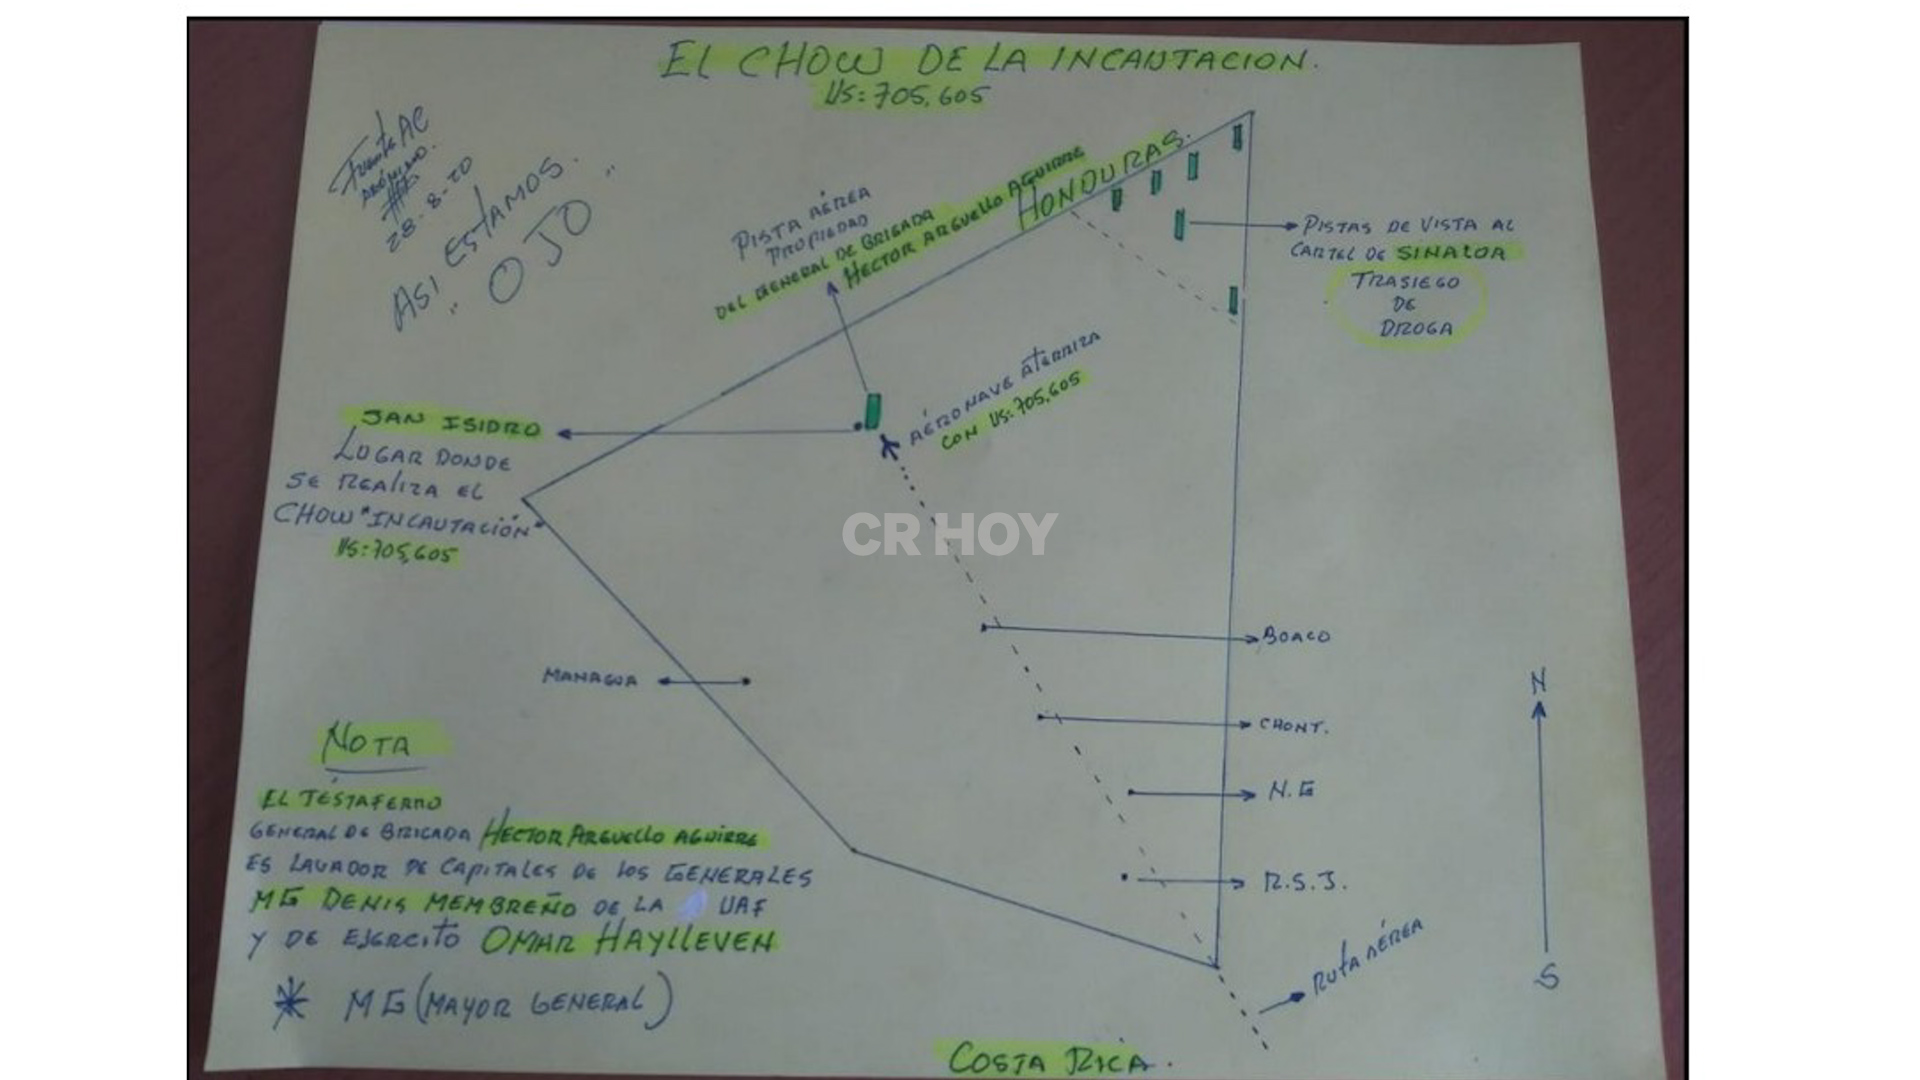 EL CHOW DE LA INCAUTACION.
US: 705,605
Fuente AC
ANÓNIMO.
28-8-20
ASI ESTAMOS.
"OJO"
PISTA AÉREA
PROPIEDAD
DEL GENERAL DE BRIGADA
HECTOR ARGUELLO AGUIRRE
HONDURAS.
PISTAS DE VISTA AL
CARTEL DE SINALOA
TRASIEGO
DE
DROGA
AÉRONAVE ATERRIZA
CON US: 705,605
SAN ISIDRO
LUGAR DONDE
SE REALIZA EL
CHOW "INCAUTACIÓN"
US: 705,605
CR HOY
BOACO
MANAGUA
CHONT.
N.G
R.S.J.
N
S
RUTA AÉREA
NOTA
EL TÉSTAFERRO
GENERAL DE BRIGADA HECTOR ARGUELLO AGUIRRE
ES LAVADOR DE CAPITALES DE LOS GENERALES
MG DENIS MEMBREÑO DE LA UAF
Y DE EJERCITO OMAR HAYLLEVEN
* MG (MAYOR GENERAL)
COSTA RICA.